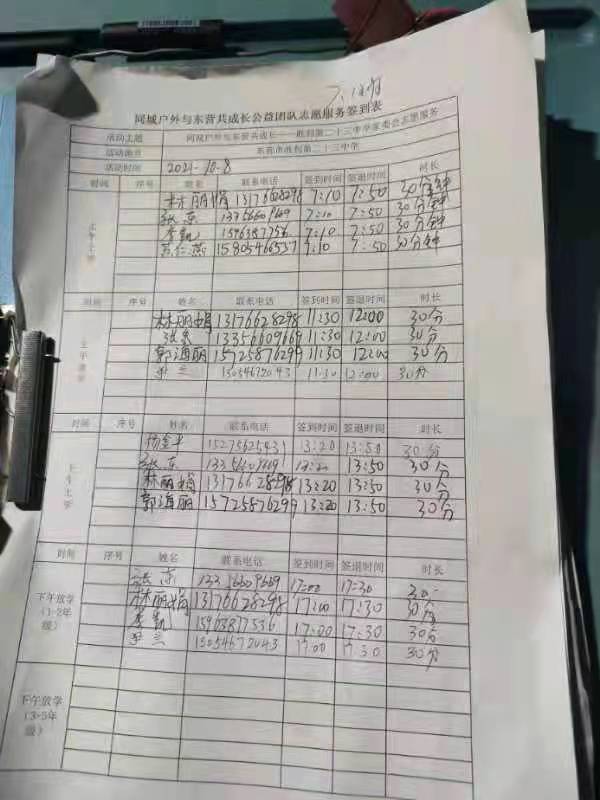 同城户外与东营共成长公益团队志愿服务签到表
活动主题 同城户外与东营共成长——胜利第二十三中学家委会志愿服务
活动地点 东营市胜利第二十三中学
活动时间 2021-10-8
时间 序号 姓名 联系电话 签到时间 签退时间 时长
林丽娟 13176628298 7:10 7:50 30分钟
张东 13356609669 7:10 7:50 30分钟
李凯 7:10 7:50 30分钟
苏仁燕 15805466537 7:10 7:50 30分钟
上午上学
时间 序号 姓名 联系电话 签到时间 签退时间 时长
林丽娟 13176628298 11:30 12:00 30分
张东 13356609669 11:30 12:00 30分
郭海丽 15725876299 11:30 12:00 30分
尹兰 13054672043 11:30 12:00 30分
上午放学
时间 序号 姓名 联系电话 签到时间 签退时间 时长
杨金平 15275625431 13:20 13:50 30分
张东 13356609669 13:20 13:50 30分
林丽娟 13176628298 13:20 13:50 30分
郭海丽 15725876299 13:20 13:50 30分
下午上学
时间 序号 姓名 联系电话 签到时间 签退时间 时长
张东 17:00 17:30 30
林丽娟 13176628298 17:00 17:30 30分
李凯 15963877536 17:00 17:30 30分
尹兰 13054672043 17:00 17:30 30分
下午放学
(1-2年
级)
下午放学
(3-5年
级)